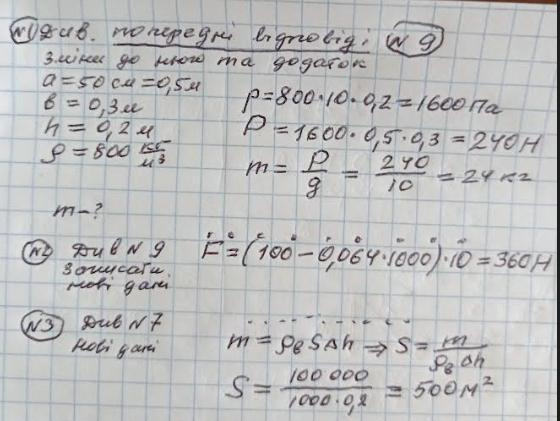 N1 Див. попередні відповіді N 9
зміни до нього та додаток
a = 50 см = 0,5м
в = 0,3м
h = 0,2 м
ρ = 800 кг/м3
m - ?
p = 800·10·0,2 = 1600 Па
P = 1600·0,5·0,3 = 240 Н
m = P/g = 240/10 = 24 кг
N2 Див N 9
записати
нові дані
F = (100 - 0,064·1000)·10 = 360Н
N3 Див N 7
нові дані
m = ρв S Δh ⇒ S = m/ρв Δh
S = 100 000/1000·0,2 = 500 м²